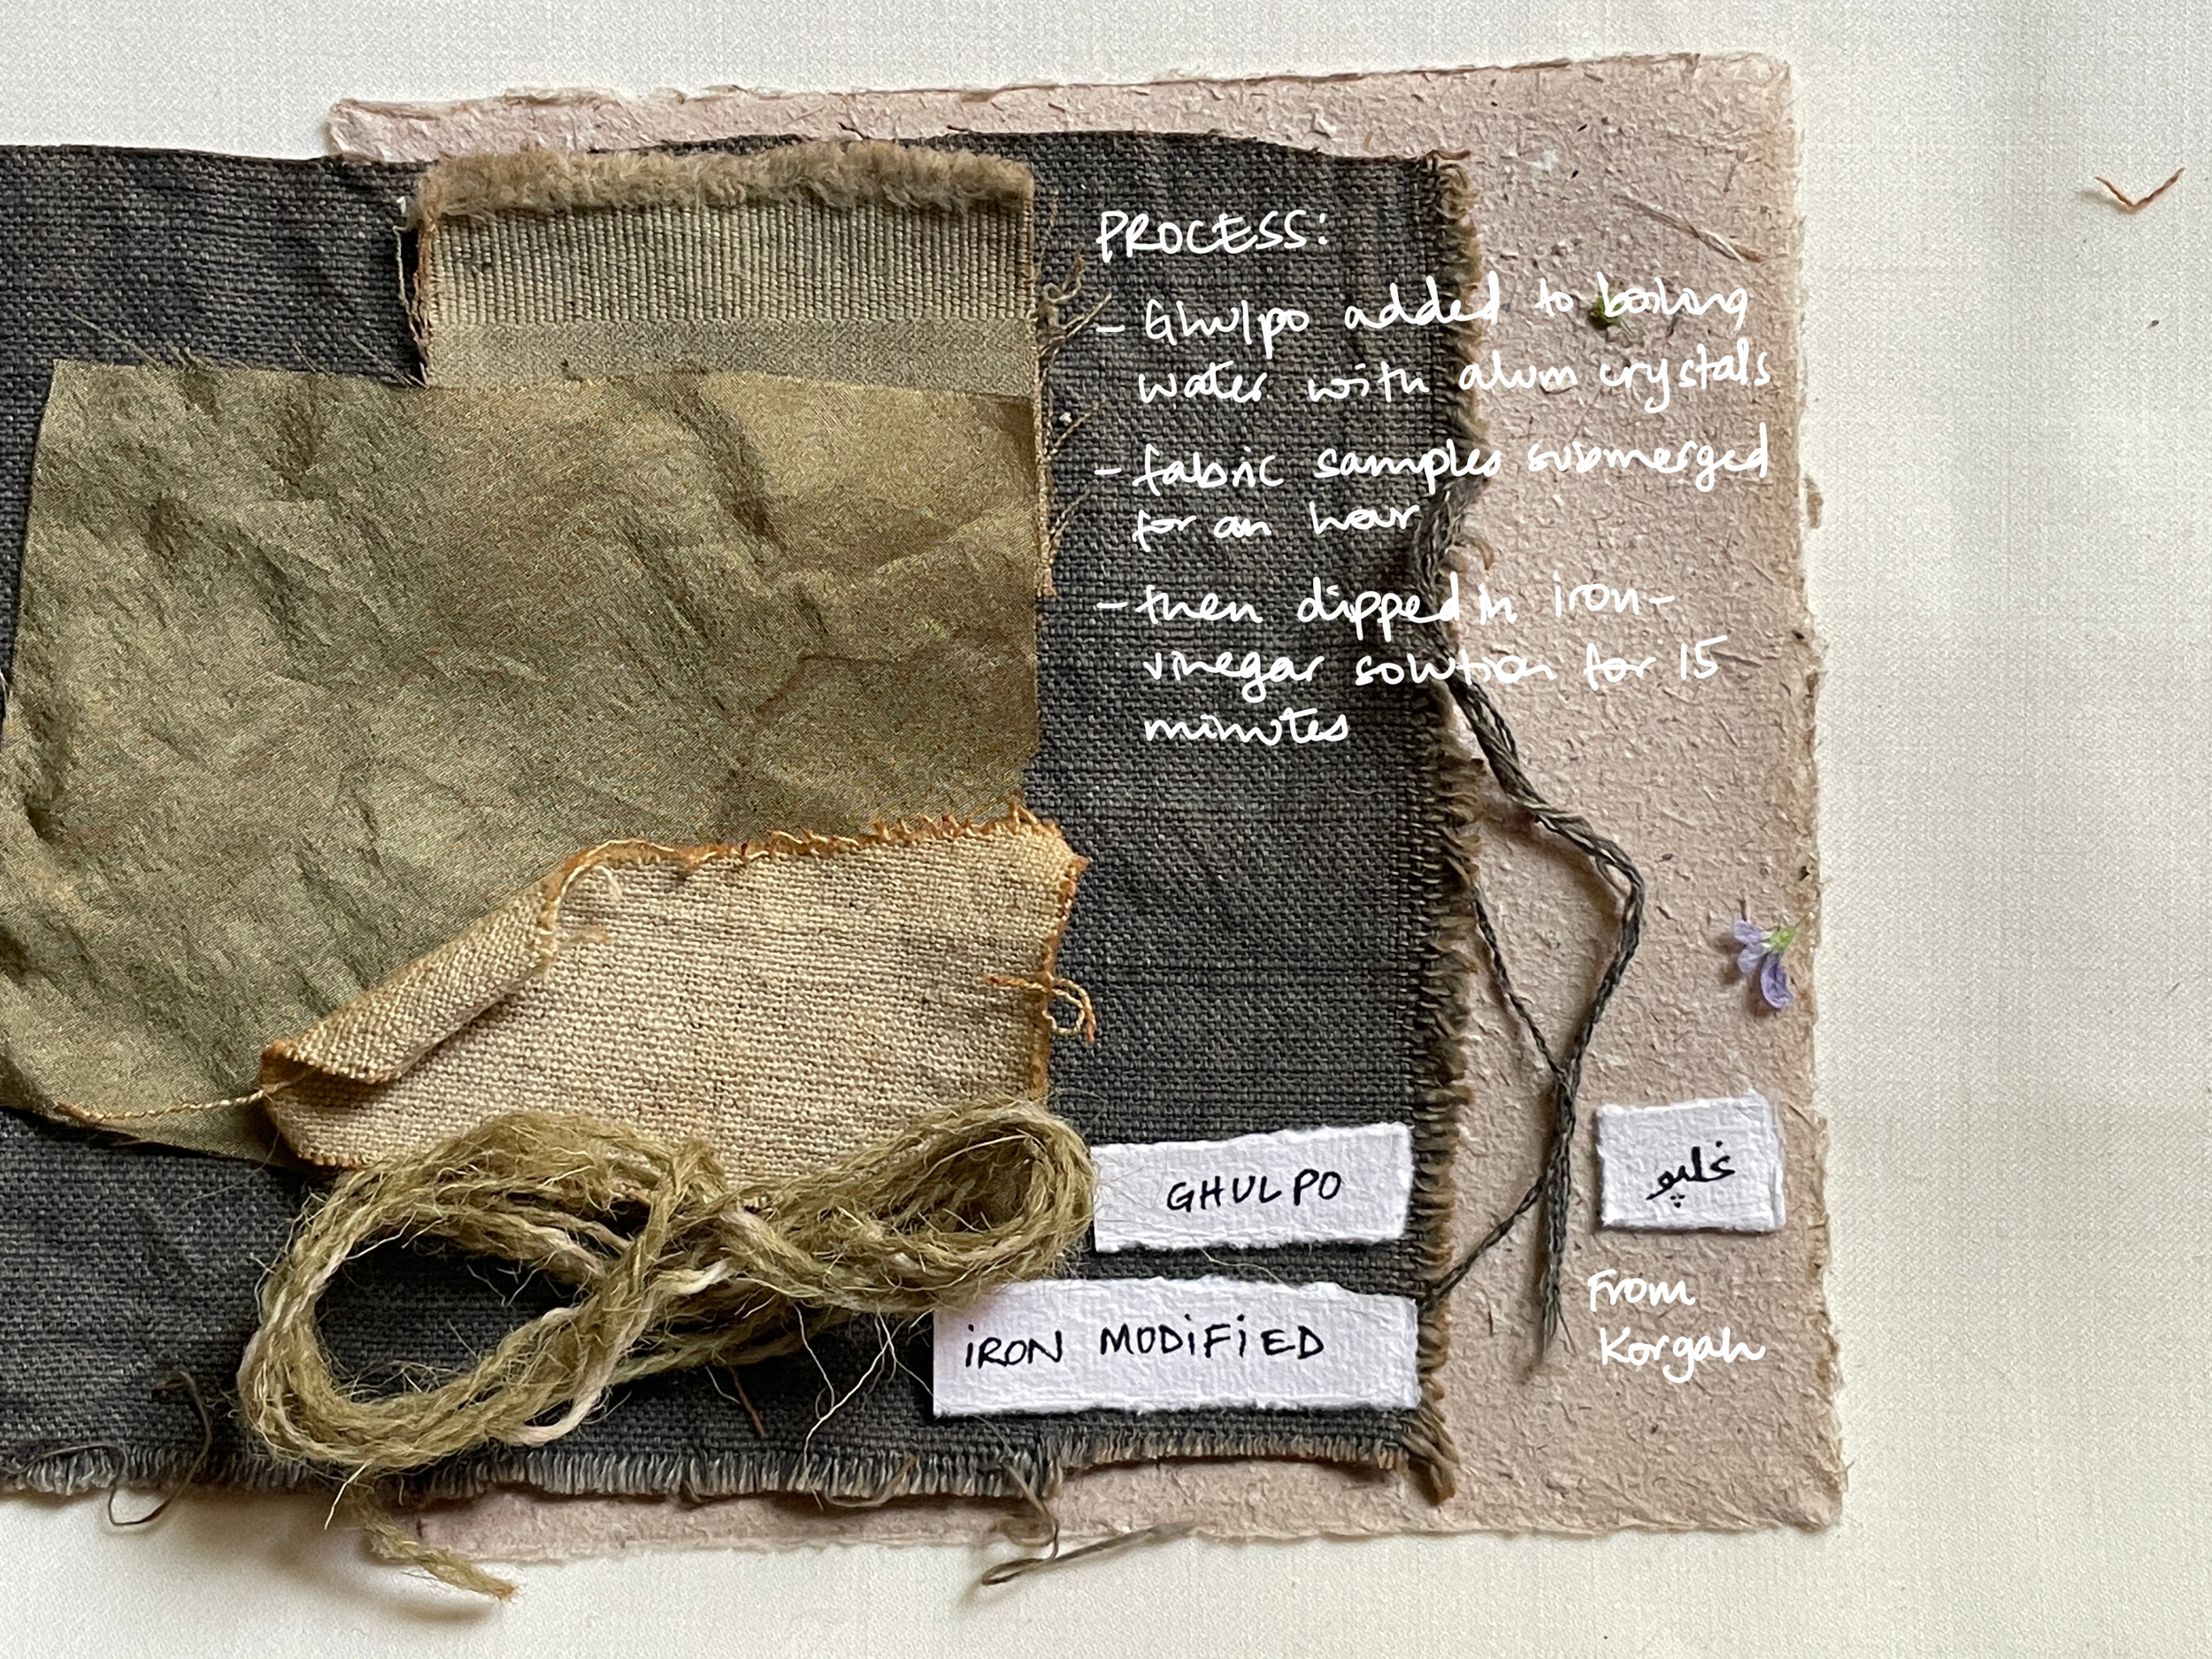 PROCESS:
- Ghulpo added to boiling
water with alum crystals
- fabric samples submerged
for an hour
- then dipped in iron-
vinegar solution for 15
minutes
GHULPO
غلپو
iRON MODiFiED
From
Korgah